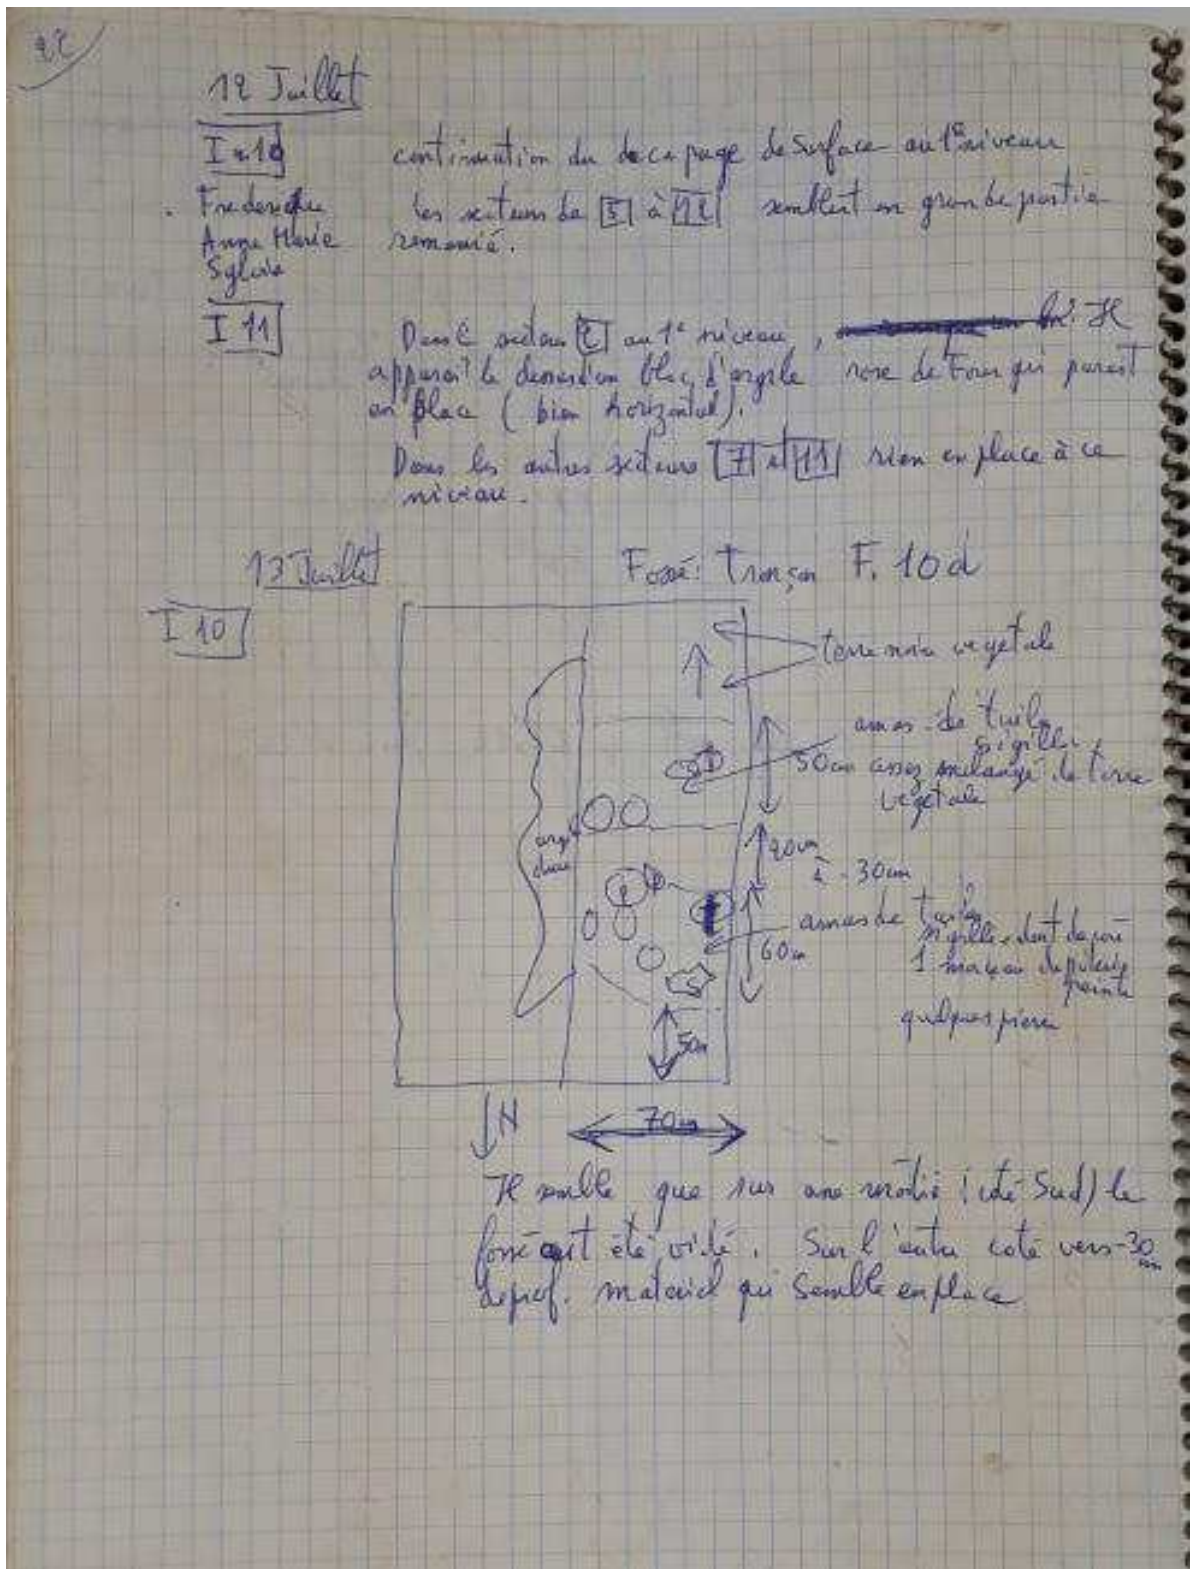 22
12 Juillet
I-10 continuation du decapage de Surface au 1e niveau
Frederique les secteurs de 5 à 12 semblent en grande partie
Anne Marie remanié.
Sylvie
I 11
Dans secteur au 1e niveau, Il
apparait le dessus d'un bloc d'argile rose de Four qui parait
en place (bien horizontal).
Dans les autres secteurs 7 et 11 rien en place à ce
niveau.
13 Juillet Fossé: Tronçon F. 10d
I 10
terre noire vegetale
amas de tuiles
sigillée,
50cm assez melangé de terre
vegetale
argile
20cm
à - 30cm
amas de tuiles
sigillée dont
60cm 1 morceau
peinte
quelques pierres
50cm
N
70cm
Il semble que sur une moitié (coté Sud) le
fossé ait été vidé. Sur l'autre coté vers -30
cm
de prof. materiel qui semble en place